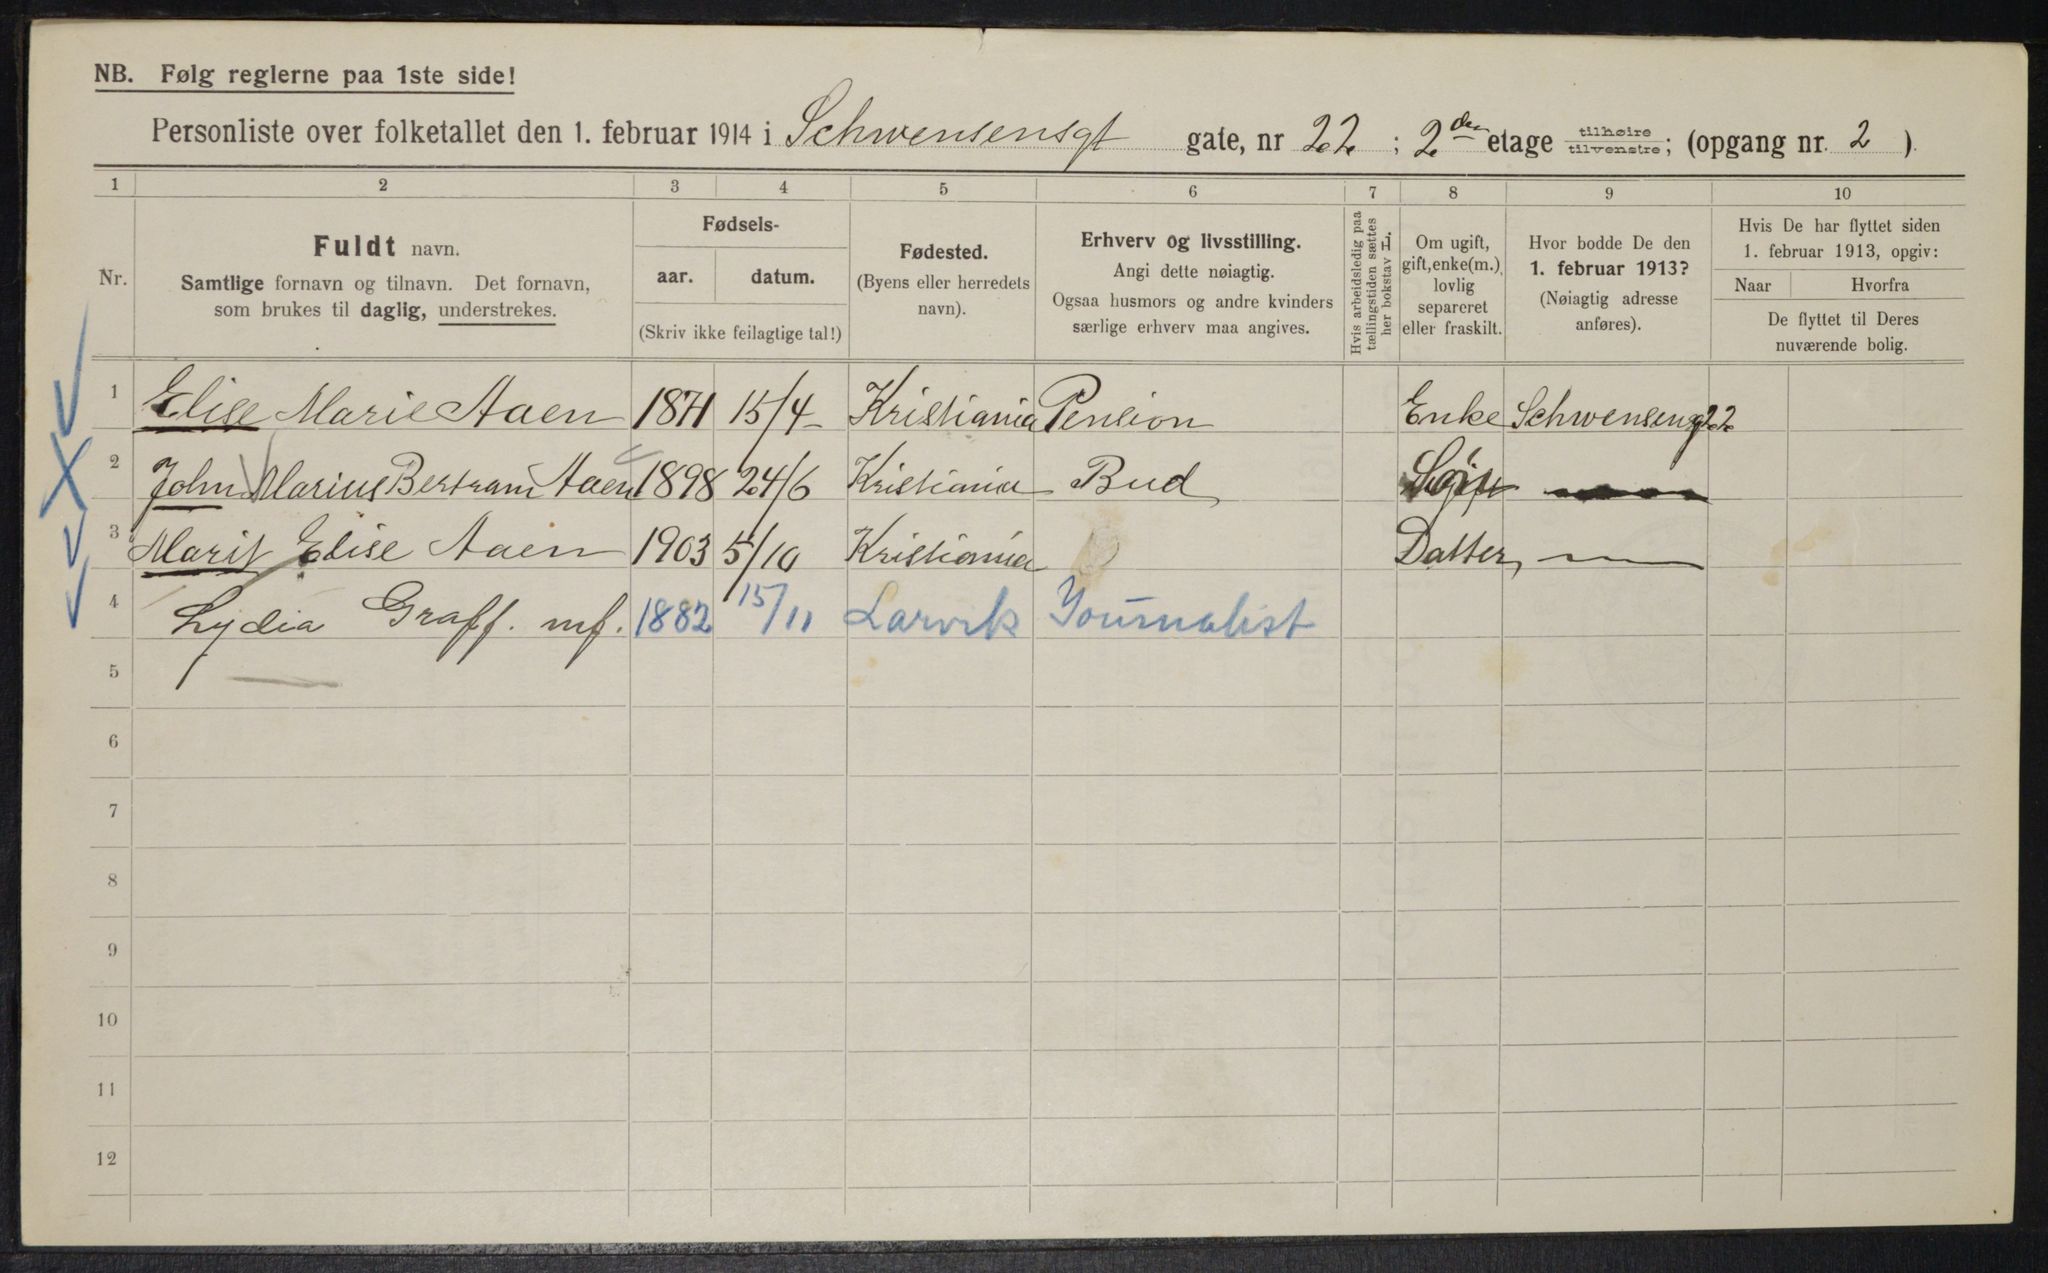 NB. Følg reglerne paa 1ste side!
Personliste over folketallet den 1. februar 1914 i Schwensensgt gate, nr 22 ; 2den etage tilhøire/tilvenstre; (opgang nr. 2 ).
1 2 3 4 5 6 7 8 9 10
Nr.
Fuldt navn.
Samtlige fornavn og tilnavn. Det fornavn,
som brukes til daglig, understrekes.
Fødsels-
aar. datum.
(Skriv ikke feilagtige tal!)
Fødested.
(Byens eller herredets
navn).
Erhverv og livsstilling.
Angi dette nøiagtig.
Ogsaa husmors og andre kvinders
særlige erhverv maa angives.
Hvis arbeidsledig paa
tællingstiden sættes
her bokstav H.
Om ugift,
gift, enke(m.),
lovlig
separeret
eller fraskilt.
Hvor bodde De den
1. februar 1913?
(Nøiagtig adresse
anføres).
Hvis De har flyttet siden
1. februar 1913, opgiv:
Naar Hvorfra
De flyttet til Deres
nuværende bolig.
1 Elise Marie Aaen 1871 15/4 Kristiania Pension Enke Schwensensg 22
2 John Marius Bertram Aaen 1898 24/6 Kristiania Bud
3 Marit Elise Aaen 1903 5/10 Kristiania Datter —
4 Lydia Graff. mf. 1882 15/11 Larvik Journalist
5
6
7
8
9
10
11
12